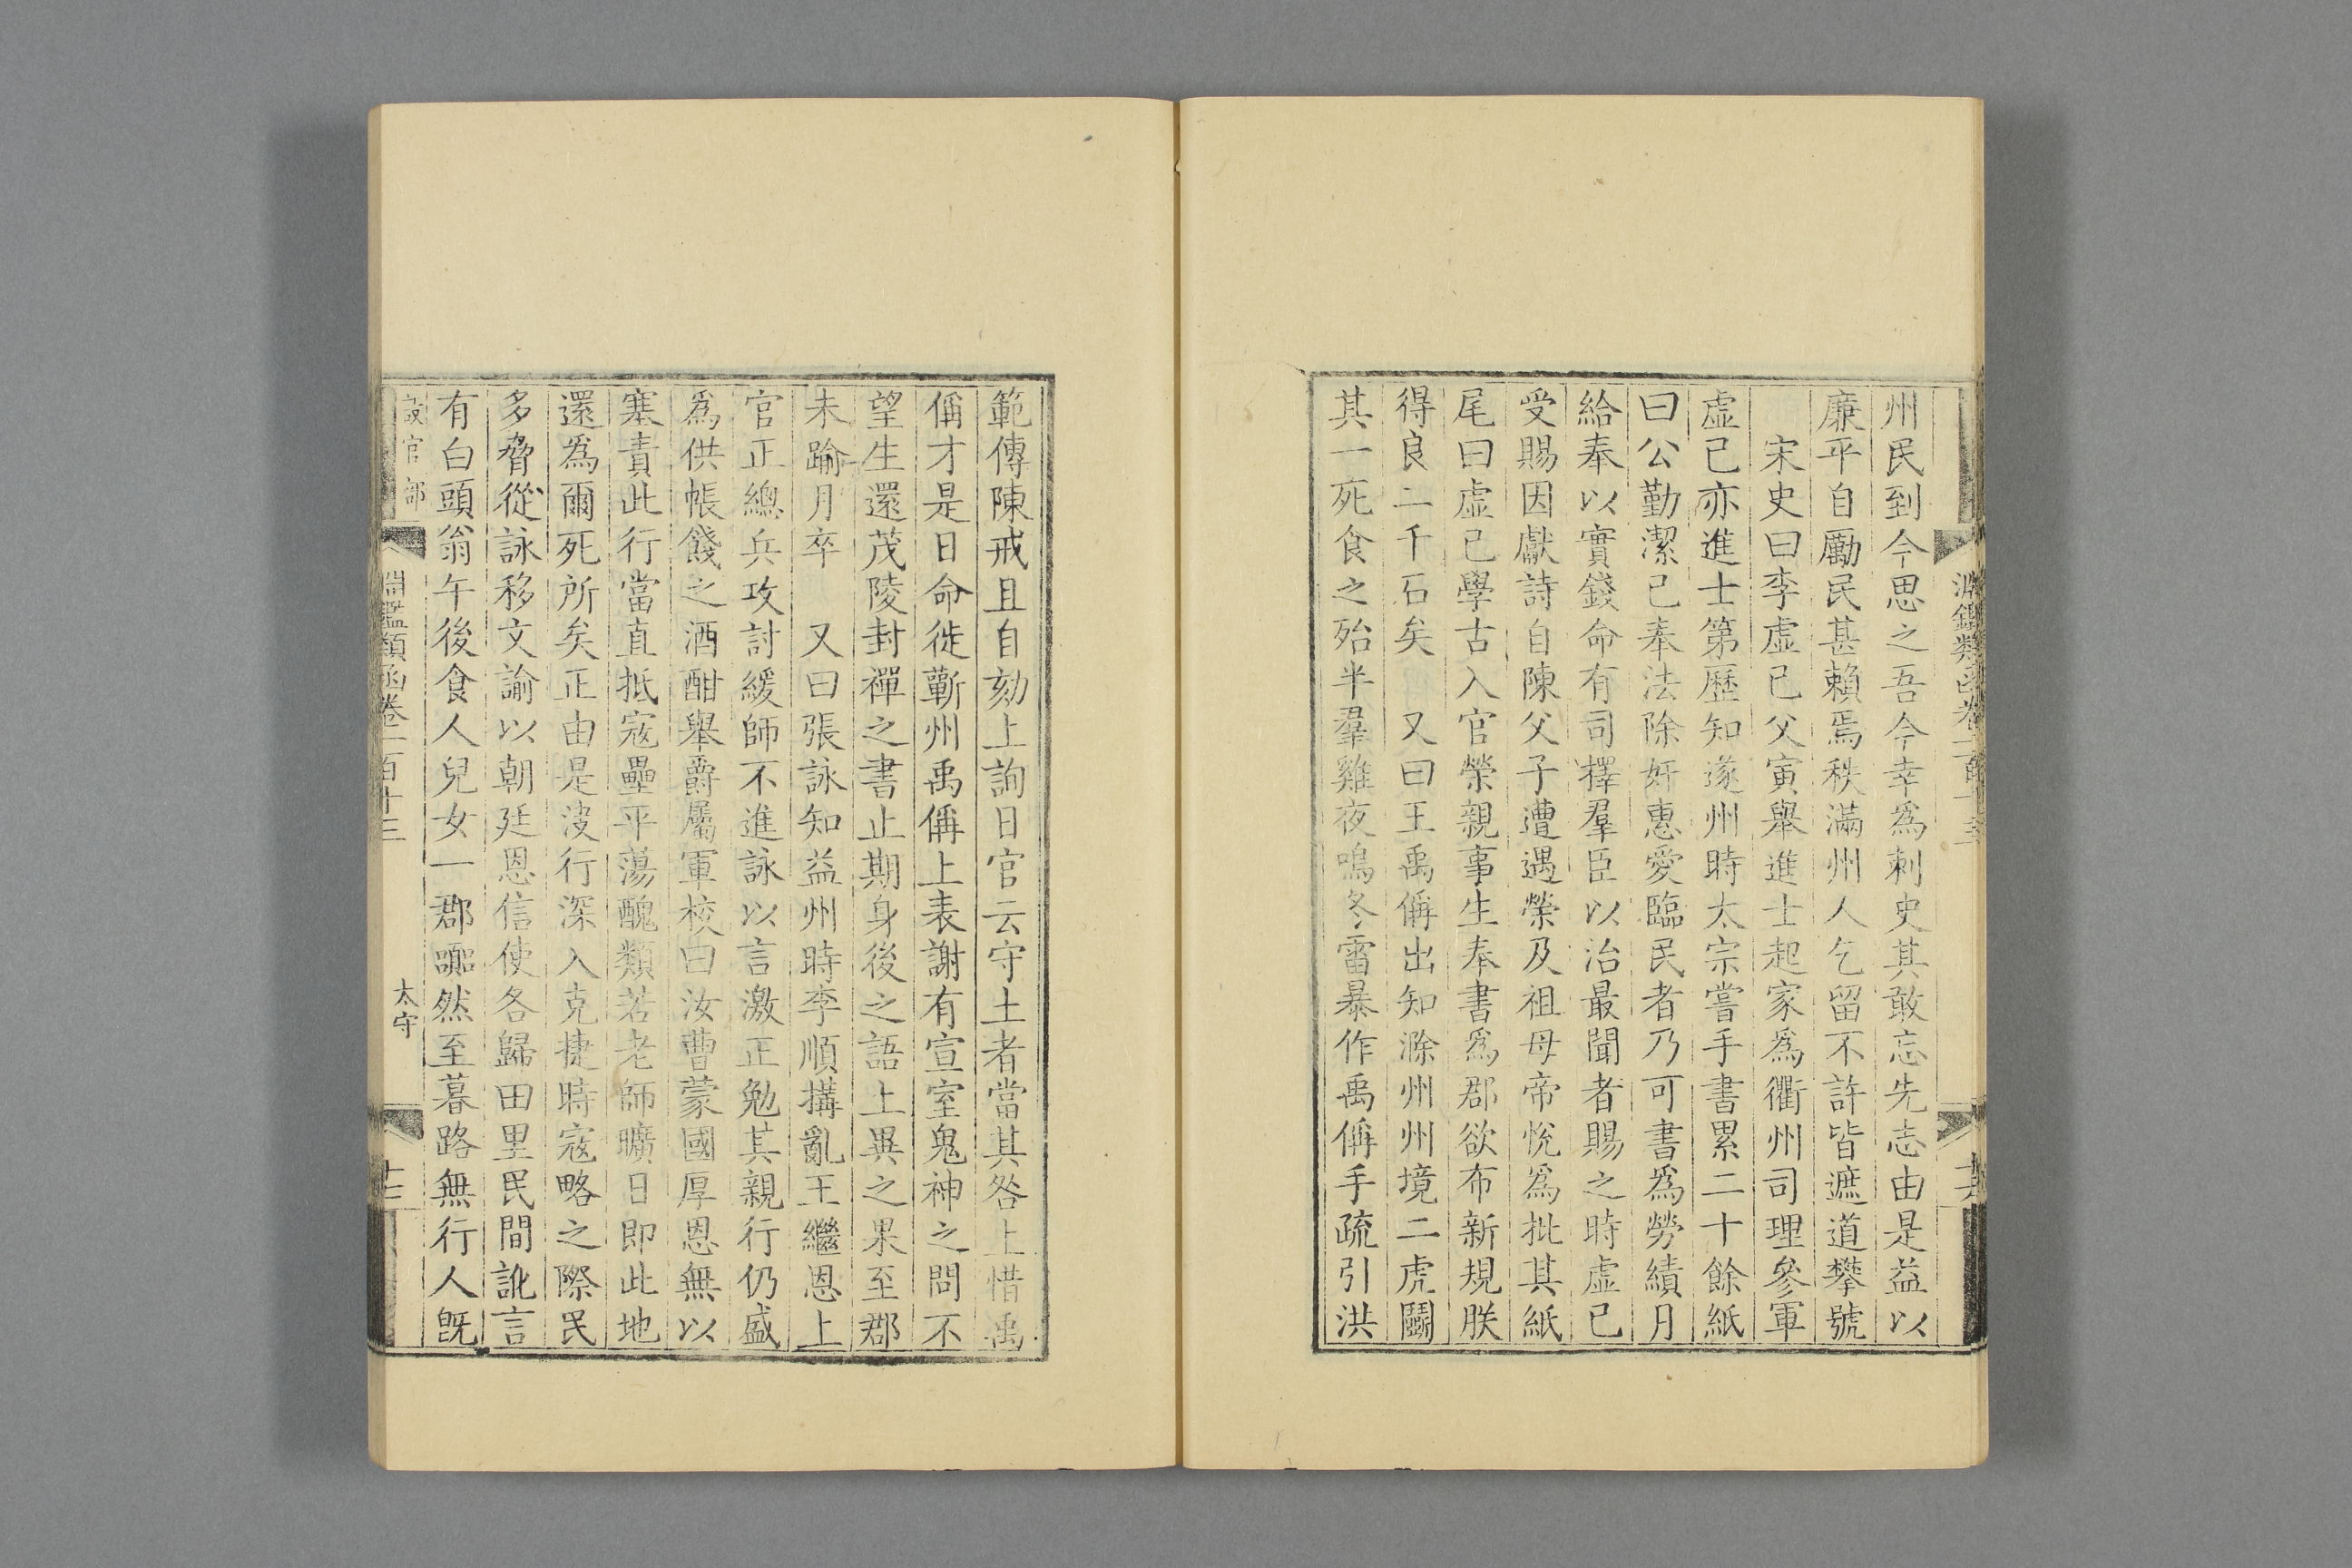 淵鑑類函卷一百十三
州民到今思之吾今幸爲刺史其敢忘先志由是益以
廉平自勵民甚賴焉秩滿州人乞留不許皆遮道攀號
宋史曰李虛己父寅舉進士起家爲衢州司理參軍
虛己亦進士第歷知遂州時太宗嘗手書累二十餘紙
曰公勤潔己奉法除奸惠愛臨民者乃可書爲勞績月
給奉以實錢命有司擇羣臣以治最聞者賜之時虛己
受賜因獻詩自陳父子遭遇榮及祖母帝悅爲批其紙
尾曰虛己學古入官榮親事生奉書爲郡欲布新規朕
得良二千石矣 又曰王禹偁出知滁州州境二虎鬭
其一死食之殆半羣雞夜鳴冬雷暴作禹偁手疏引洪
範傳陳戒且自劾上詢日官云守土者當其咎上惜禹
偁才是日命徙蘄州禹偁上表謝有宣室鬼神之問不
望生還茂陵封禪之書止期身後之語上異之果至郡
未踰月卒 又曰張詠知益州時李順搆亂王繼恩上
官正總兵攻討緩師不進詠以言激正勉其親行仍盛
爲供帳餞之酒酣舉爵屬軍校曰汝曹蒙國厚恩無以
塞責此行當直抵寇壘平蕩醜類若老師曠日即此地
還爲爾死所矣正由是決行深入克捷時寇略之際民
多脅從詠移文諭以朝廷恩信使各歸田里民間訛言
有白頭翁午後食人兒女一郡嚻然至暮路無行人旣
設官部
淵鑑類函卷一百十三
太守
十三